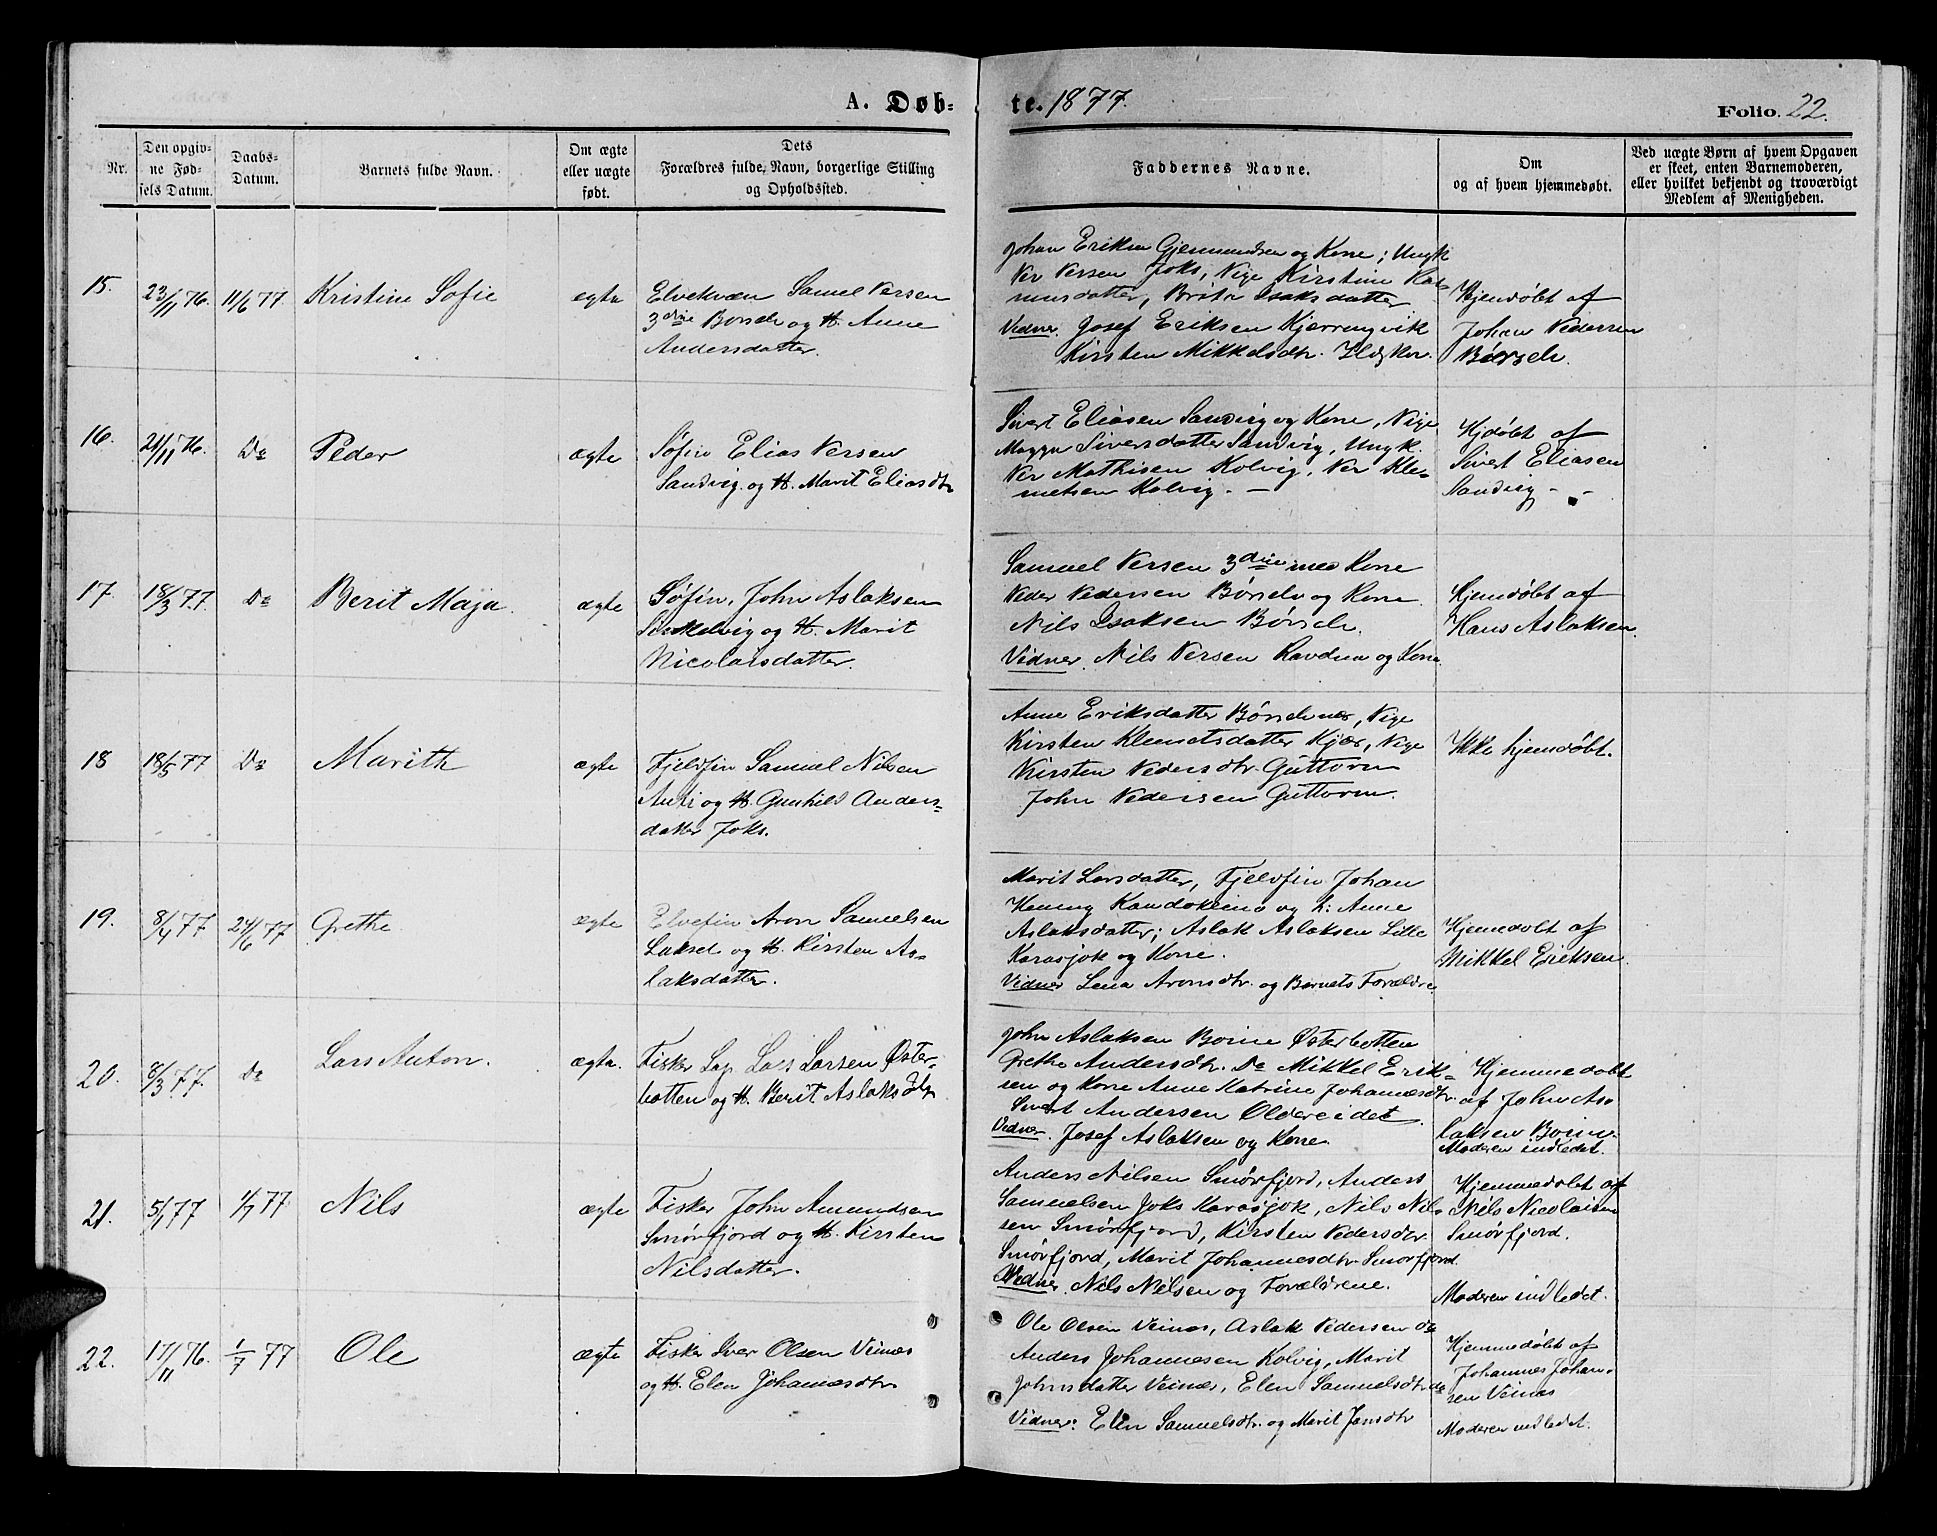 A. Døb-
te. 1877.
Folio. 22.
Nr.
Den opgiv-
ne Fød-
sels Datum.
Daabs-
Datum.
Barnets fulde Navn.
Om ægte
eller uægte
født.
Dets
Forældres fulde Navn, borgerlige Stilling
og Opholdssted.
Faddernes Navne.
Om
og af hvem hjemmedøbt.
Ved uægte Børn af hvem Opgaven
er skeet, enten Barnemoderen,
eller hvilket bekjendt og troværdigt
Medlem af Menigheden.
15.
23/11 76.
11/6 77.
Kristine Sofie
egte
Elvekvæn Samuel Persen
3die Børsele og H. Anne
Andersdatter.
Johan Eriksen og Kone; Ungk
Per Persen Joks, Pige Kirstine Ras-
musdatter, Brita Isaksdatter
Vidner. Josef Eriksen Kjerringvik
Kirsten Mikkelsdtr.
Hjemdøbt af
Johan Pedersen
Børsele.
16.
21/11 76.
Do
Peder
ægte
Søfin Elias Persen
Sandvig og H. Marit Eliasdtr
Sivert Eliasen Sandvig og Kone, Pige
Magga Siversdatter Sandvig, Ungk.
Per Mathisen Kolvig, Per Kle-
metsen Kolvig. -
Hjdøbt af
Sivert Eliasen
Sandvig - -
17.
18/3 77.
Do
Berit Maja
ægte
Søfin, John Aslaksen
og H. Marit
Nicolaisdatter.
Samuel Persen 3die med Kone
Peder Pedersen Børsele og Kone
Nils Isaksen Børsele.
Vidner. Nils Persen Ravdna og Kone
Hjemdøbt af
Hans Aslaksen.
18
18/5 77
Do
Marith
ægte
Fjeldfin Samuel Nilsen
Anti og H. Gunhild Anders-
datter Joks.
Anne Eriksdatter, Pige
Kirsten Klemetsdatter Kjær, Pige
Kirsten Pedersdtr. Guttorm
John Pedersen Guttorm.
Ikke hjemdøbt.
19.
8/4 77.
24/6 77
Grethe
ægte
Elvefin Aron Samuelsen
Laksel og H. Kirsten As-
laksdatter.
Marit Larsdatter, Fjeldfin Johan
Heming Kaudokeino og h: Anne
Aslaksdatter; Aslak Aslaksen Lille
Karasjok og Kone.
Vidner Lena Aronsdtr. og Barnets Forældre
Hjemmedøbt af
Mikkel Eriksen.
20.
8/3 77.
Do
Lars Anton.
ægte.
Fisker Lap Lars Larsen Øster-
botten og H. Berit Aslaksdtr
John Aslaksen Boine Østerbotten
Grethe Andersdtr. Do Mikkel Erik-
sen og Kone Anne Katrine Johannesdtr.
Sivert Andersen Oldereidet
Vidner. Josef Aslaksen og Kone.
Hjemmedøbt
af John As
laksen Boine.
Moderen indledet.
21.
5/1 77
1/7 77
Nils
ægte
Fisker John Amundsen
Smørfjord og H. Kirsten
Nilsdatter.
Anders Nilsen Smørfjord, Anders
Samuelsen Joks Karasjok, Nils Nil-
sen Smørfjord, Kirsten Pedersdtr
Smørfjord, Marit Johannesdtr. Smørfjord.
Vidner. Nils Nilsen og Forældrene.
Hjemmedøbt af
Nils Nicolaisen
Smørfjord.
Moderen indledet.
22.
17/11 76.
1/7 77
Ole
ægte
Fisker Iver Olsen Veines
og H. Elen Johannesdtr.
Ole Olsen Veines, Aslak Pedersen do
Anders Johannesen Kolvig, Marit
Johnsdatter Veines, Elen Samuelsdtr. do
Vidner: Elen Samuelsdtr. og Marit Jansdtr
Hjemmedøbt af
Johannes Johan-
sen Veines
Moderen indledet.